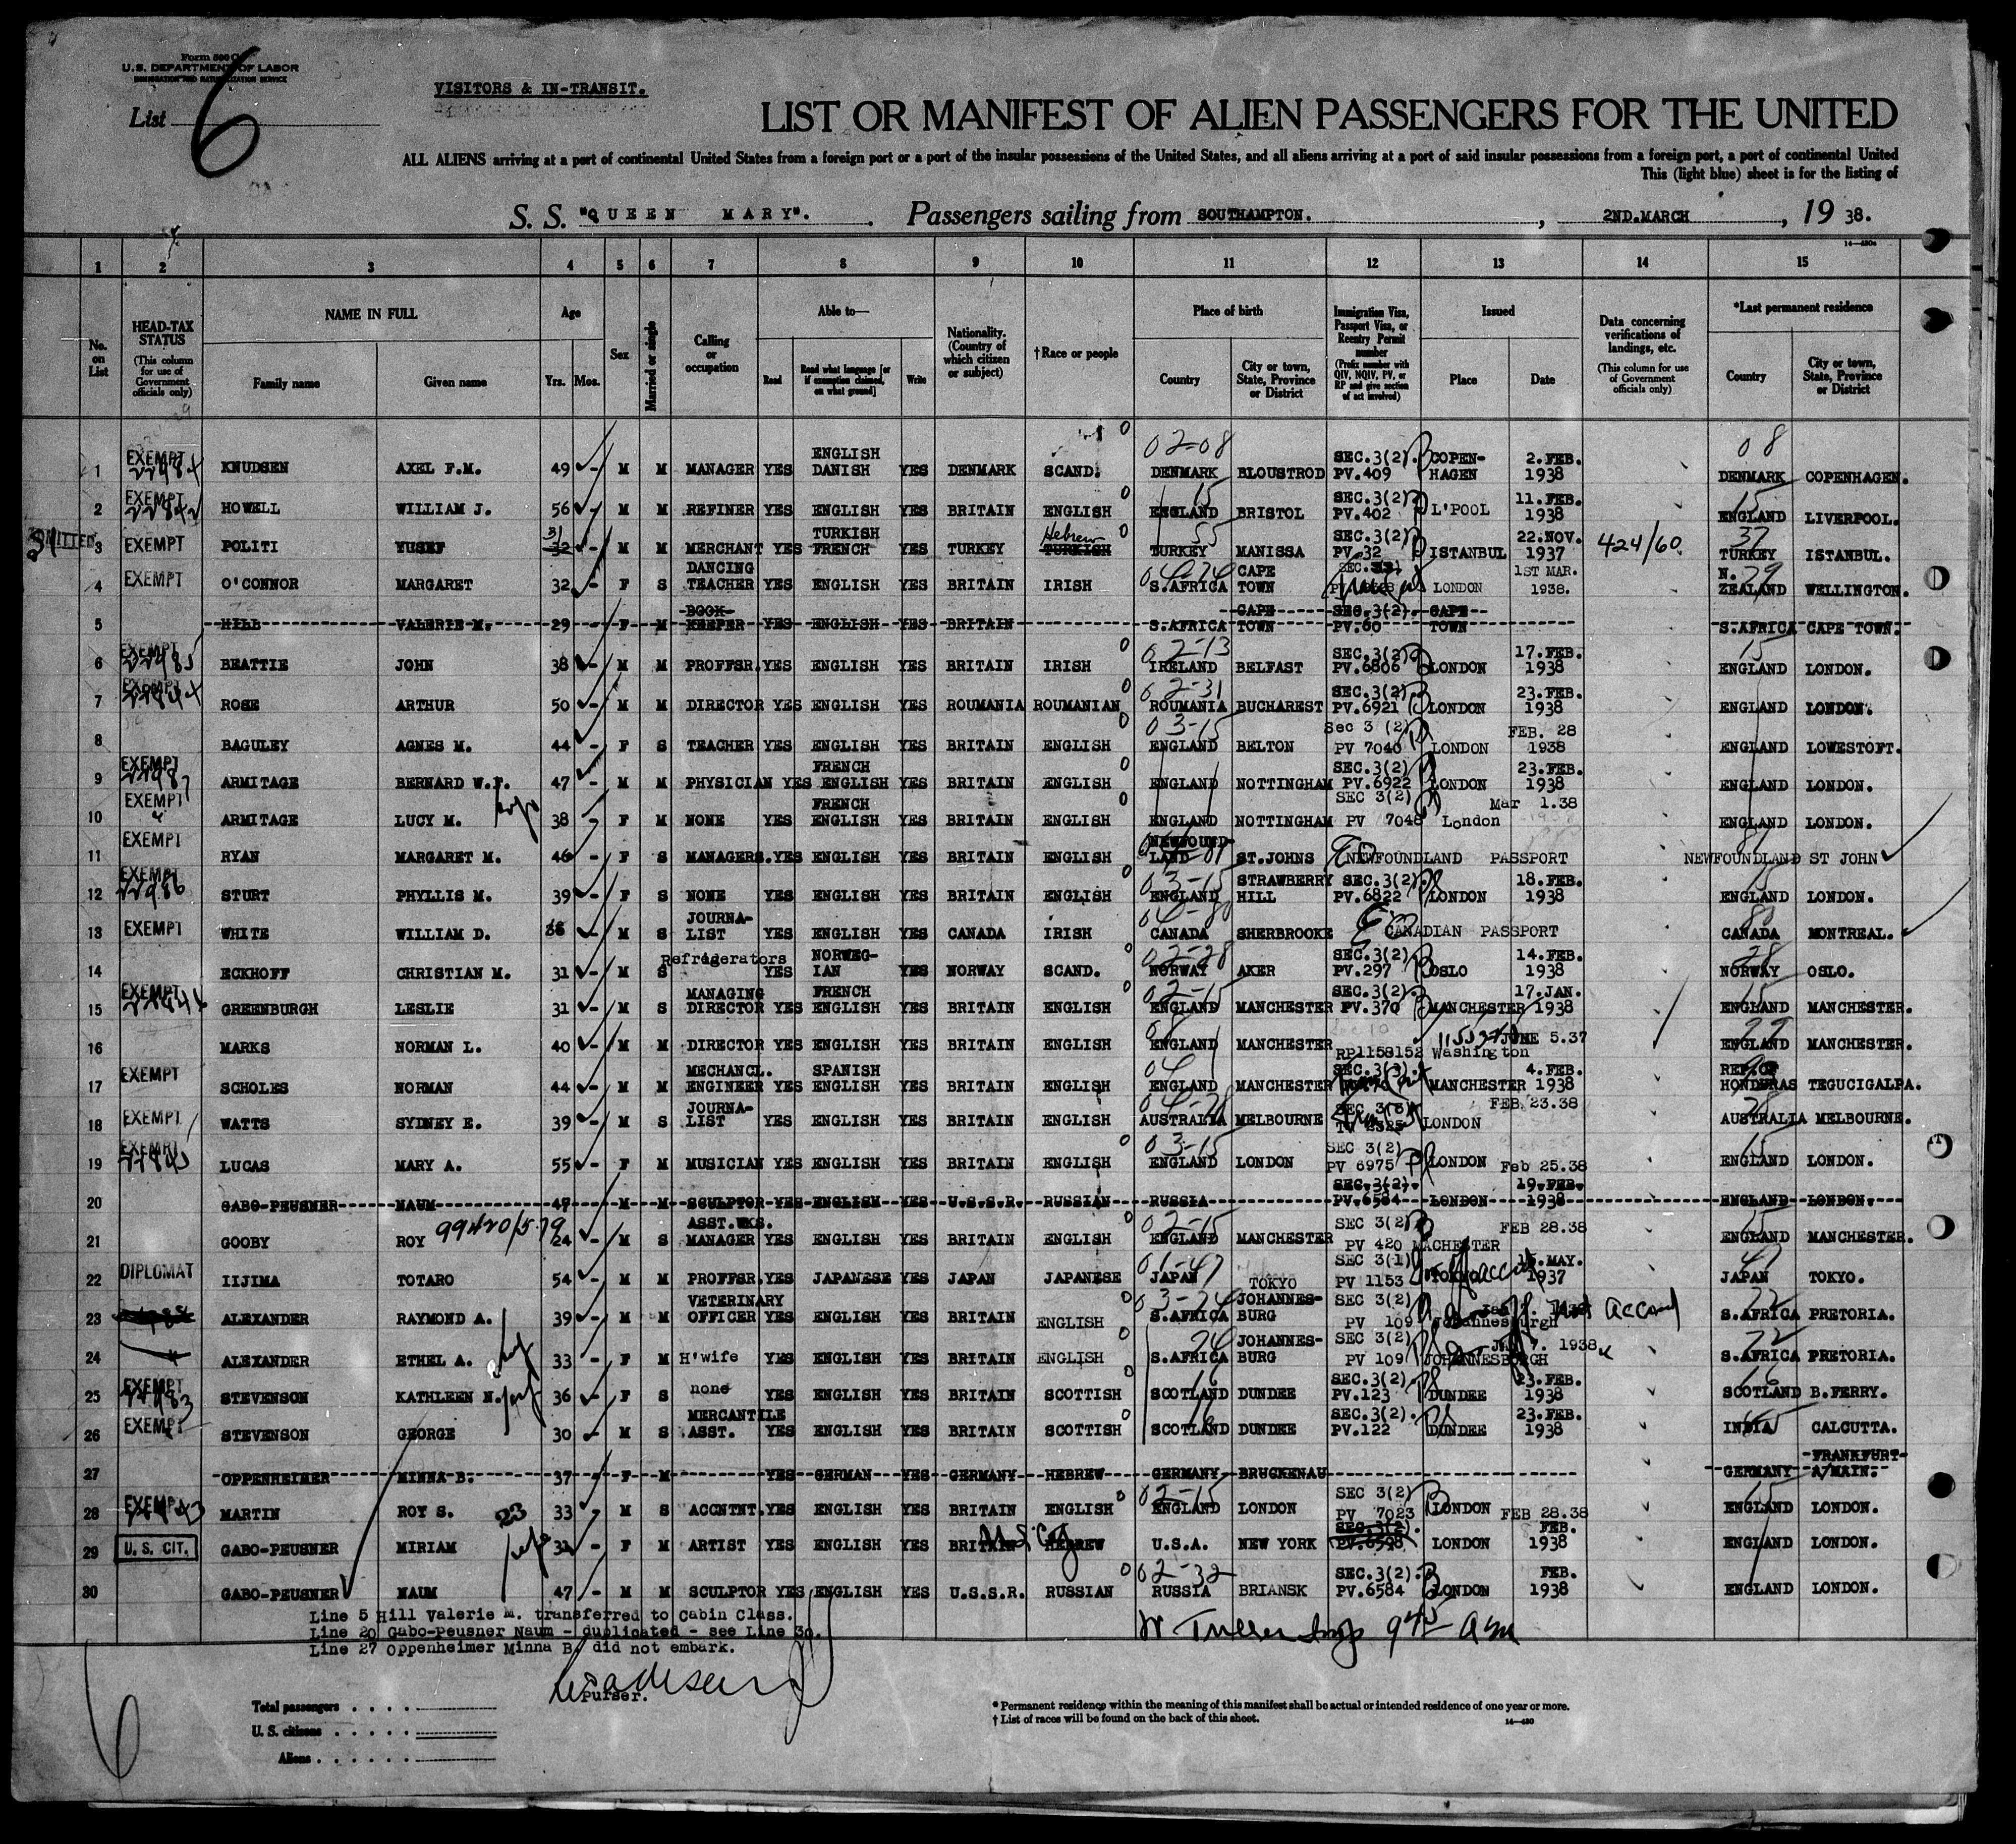 Form 500 C
U.S. DEPARTMENT OF LABOR
IMMIGRATION AND NATURALIZATION SERVICE
VISITORS & IN-TRANSIT.
List 6
LIST OR MANIFEST OF ALIEN PASSENGERS FOR THE UNITED
ALL ALIENS arriving at a port of continental United States from a foreign port or a port of the insular possessions of the United States, and all aliens arriving at a port of said insular possessions from a foreign port, a port of continental United
This (light blue) sheet is for the listing of
S. S. "QUEEN MARY". Passengers sailing from SOUTHAMPTON. , 2ND.MARCH , 19 38.
1 2 3 4 5 6 7 8 9 10 11 12 13 14 15
No. on List
HEAD-TAX STATUS (This column for use of Government officials only)
NAME IN FULL Family name Given name
Age Yrs. Mos.
Sex
Married or single
Calling or occupation
Able to— Read Read what language [or if exemption claimed, on what ground] Write
Nationality. (Country of which citizen or subject)
†Race or people
Place of birth Country City or town, State, Province or District
Immigration Visa, Passport Visa, or Reentry Permit number (Prefix number with QIV, NQIV, PV, or RP and give section of act involved)
Issued Place Date
Data concerning verifications of landings, etc. (This column for use of Government officials only)
*Last permanent residence Country City or town, State, Province or District
1 EXEMPT KNUDSEN AXEL F.M. 49 M M MANAGER YES ENGLISH DANISH YES DENMARK SCAND. 02-08 DENMARK BLOUSTROD SEC.3(2). PV.409 COPENHAGEN 2.FEB. 1938 08 DENMARK COPENHAGEN.
2 EXEMPT HOWELL WILLIAM J. 56 M M REFINER YES ENGLISH YES BRITAIN ENGLISH 15 ENGLAND BRISTOL SEC.3(2) PV.402 L'POOL 11.FEB. 1938 15 ENGLAND LIVERPOOL.
3 EXEMPT POLITI YUSEF 31 32 M M MERCHANT YES TURKISH FRENCH YES TURKEY Hebrew TURKISH 55 TURKEY MANISSA SEC.3(2) PV.32 ISTANBUL 22.NOV. 1937 424/60 37 TURKEY ISTANBUL.
4 EXEMPT O'CONNOR MARGARET 32 F S DANCING TEACHER YES ENGLISH YES BRITAIN IRISH S.AFRICA CAPE TOWN LONDON 1ST MAR. 1938. N. ZEALAND WELLINGTON.
5 HILL VALERIE M. 29 F M BOOK-KEEPER YES ENGLISH YES BRITAIN S.AFRICA CAPE TOWN SEC.3(2). PV.60 CAPE TOWN S.AFRICA CAPE TOWN.
6 EXEMPT 22985 BEATTIE JOHN 38 M M PROFFSR. YES ENGLISH YES BRITAIN IRISH 02-13 IRELAND BELFAST SEC.3(2) PV.6806 LONDON 17.FEB. 1938 15 ENGLAND LONDON.
7 EXEMPT ROSE ARTHUR 50 M M DIRECTOR YES ENGLISH YES ROUMANIA ROUMANIAN 02-31 ROUMANIA BUCHAREST SEC.3(2). PV.6921 LONDON 23.FEB. 1938 ENGLAND LONDON.
8 BAGULEY AGNES M. 44 F S TEACHER YES ENGLISH YES BRITAIN ENGLISH 03-15 ENGLAND BELTON Sec 3 (2) PV 7040 LONDON FEB. 28 1938 ENGLAND LOWESTOFT.
9 EXEMPT 22987 ARMITAGE BERNARD W.F. 47 M M PHYSICIAN YES FRENCH ENGLISH YES BRITAIN ENGLISH ENGLAND NOTTINGHAM SEC.3(2) PV.6922 LONDON 23.FEB. 1938 ENGLAND LONDON.
10 EXEMPT ARMITAGE LUCY M. 38 F M NONE YES FRENCH ENGLISH YES BRITAIN ENGLISH ENGLAND NOTTINGHAM SEC 3(2) PV 7048 London Mar 1.38 ENGLAND LONDON.
11 EXEMPT RYAN MARGARET M. 46 F S MANAGERS. YES ENGLISH YES BRITAIN ENGLISH NEWFOUND-LAND ST.JOHNS NEWFOUNDLAND PASSPORT NEWFOUNDLAND ST JOHN
12 EXEMPT 22986 STURT PHYLLIS M. 39 F S NONE YES ENGLISH YES BRITAIN ENGLISH 03-15 ENGLAND STRAWBERRY HILL SEC.3(2). PV.6822 LONDON 18.FEB. 1938 15 ENGLAND LONDON.
13 EXEMPT WHITE WILLIAM D. M S JOURNA-LIST YES ENGLISH YES CANADA IRISH 04-80 CANADA SHERBROOKE CANADIAN PASSPORT 80 CANADA MONTREAL.
14 ECKHOFF CHRISTIAN M. 31 M S Refrigerators YES NORWEG-IAN YES NORWAY SCAND. 02-28 NORWAY AKER SEC.3(2) PV.297 OSLO 14.FEB. 1938 28 NORWAY OSLO.
15 EXEMPT GREENBURGH LESLIE 31 M S MANAGING DIRECTOR YES FRENCH ENGLISH YES BRITAIN ENGLISH 02-15 ENGLAND MANCHESTER SEC.3(2). PV.370 MANCHESTER 17.JAN. 1938 15 ENGLAND MANCHESTER.
16 MARKS NORMAN L. 40 M M DIRECTOR YES ENGLISH YES BRITAIN ENGLISH ENGLAND MANCHESTER RP1158152 Washington JUNE 5.37 ENGLAND MANCHESTER.
17 EXEMPT SCHOLES NORMAN 44 M M MECHANCL. ENGINEER YES SPANISH ENGLISH YES BRITAIN ENGLISH 04 ENGLAND MANCHESTER SEC.3(3). MANCHESTER 4.FEB. 1938 REP.OF HONDURAS TEGUCIGALPA.
18 EXEMPT WATTS SYDNEY E. 39 M S JOURNA-LIST YES ENGLISH YES BRITAIN ENGLISH 04-78 AUSTRALIA MELBOURNE LONDON FEB 23.38 AUSTRALIA MELBOURNE.
19 EXEMPT LUCAS MARY A. 55 F M MUSICIAN YES ENGLISH YES BRITAIN ENGLISH 03-15 ENGLAND LONDON SEC 3(2) PV 6975 LONDON Feb 25.38 15 ENGLAND LONDON.
20 GABO-PEUSNER NAUM 47 M M SCULPTOR YES ENGLISH YES U.S.S.R. RUSSIAN RUSSIA SEC.3(2). PV.6584 LONDON 19.FEB. 1938 ENGLAND LONDON.
21 GOOBY ROY 24 M S ASST.WKS. MANAGER YES ENGLISH YES BRITAIN ENGLISH 02-15 ENGLAND MANCHESTER SEC 3(2) PV 420 MACHESTER FEB 28.38 15 ENGLAND MANCHESTER.
22 DIPLOMAT IIJIMA TOTARO 54 M M PROFFSR. YES JAPANESE YES JAPAN JAPANESE 01-47 JAPAN TOKYO SEC 3(1) PV 1153 TOKYO 15.MAY. 1937 47 JAPAN TOKYO.
23 ALEXANDER RAYMOND A. 39 M M VETERINARY OFFICER YES ENGLISH YES BRITAIN ENGLISH S.AFRICA JOHANNES-BURG SEC 3(2) PV 109 Johannesburgh S.AFRICA PRETORIA.
24 ALEXANDER ETHEL A. 33 F M H'wife YES ENGLISH YES BRITAIN ENGLISH S.AFRICA JOHANNES-BURG SEC 3(2) PV 109 JOHANNESBURGH 1938 S.AFRICA PRETORIA.
25 EXEMPT 22983 STEVENSON KATHLEEN N. 36 F S none YES ENGLISH YES BRITAIN SCOTTISH 16 SCOTLAND DUNDEE SEC.3(2). PV.123 DUNDEE 23.FEB. 1938 16 SCOTLAND B.FERRY.
26 EXEMPT STEVENSON GEORGE 30 M S MERCANTILE ASST. YES ENGLISH YES BRITAIN SCOTTISH SCOTLAND DUNDEE SEC.3(2). PV.122 DUNDEE 23.FEB. 1938 INDIA CALCUTTA.
27 OPPENHEIMER MINNA B. 37 F M YES GERMAN YES GERMANY HEBREW GERMANY BRUCKENAU GERMANY FRANKFURT-A/MAIN.
28 EXEMPT MARTIN ROY S. 33 M S ACCNTNT. YES ENGLISH YES BRITAIN ENGLISH 02-15 ENGLAND LONDON SEC 3(2) PV 7023 LONDON FEB 28.38 15 ENGLAND LONDON.
29 U. S. CIT. GABO-PEUSNER MIRIAM F M ARTIST YES ENGLISH YES BRITAIN HEBREW U.S.A. NEW YORK SEC.3(2). PV.6598 LONDON FEB. 1938 ENGLAND LONDON.
30 GABO-PEUSNER NAUM 47 M M SCULPTOR YES ENGLISH YES U.S.S.R. RUSSIAN 02-32 RUSSIA BRIANSK SEC.3(2). PV.6584 LONDON FEB. 1938 ENGLAND LONDON.
Line 5 Hill Valerie M. transferred to Cabin Class.
Line 20 Gabo-Peusner Naum - duplicated - see Line 30.
Line 27 Oppenheimer Minna B. did not embark.
Purser.
Total passengers . . . .
U. S. citizens . . . . .
Aliens . . . . . .
* Permanent residence within the meaning of this manifest shall be actual or intended residence of one year or more.
† List of races will be found on the back of this sheet.
14—430